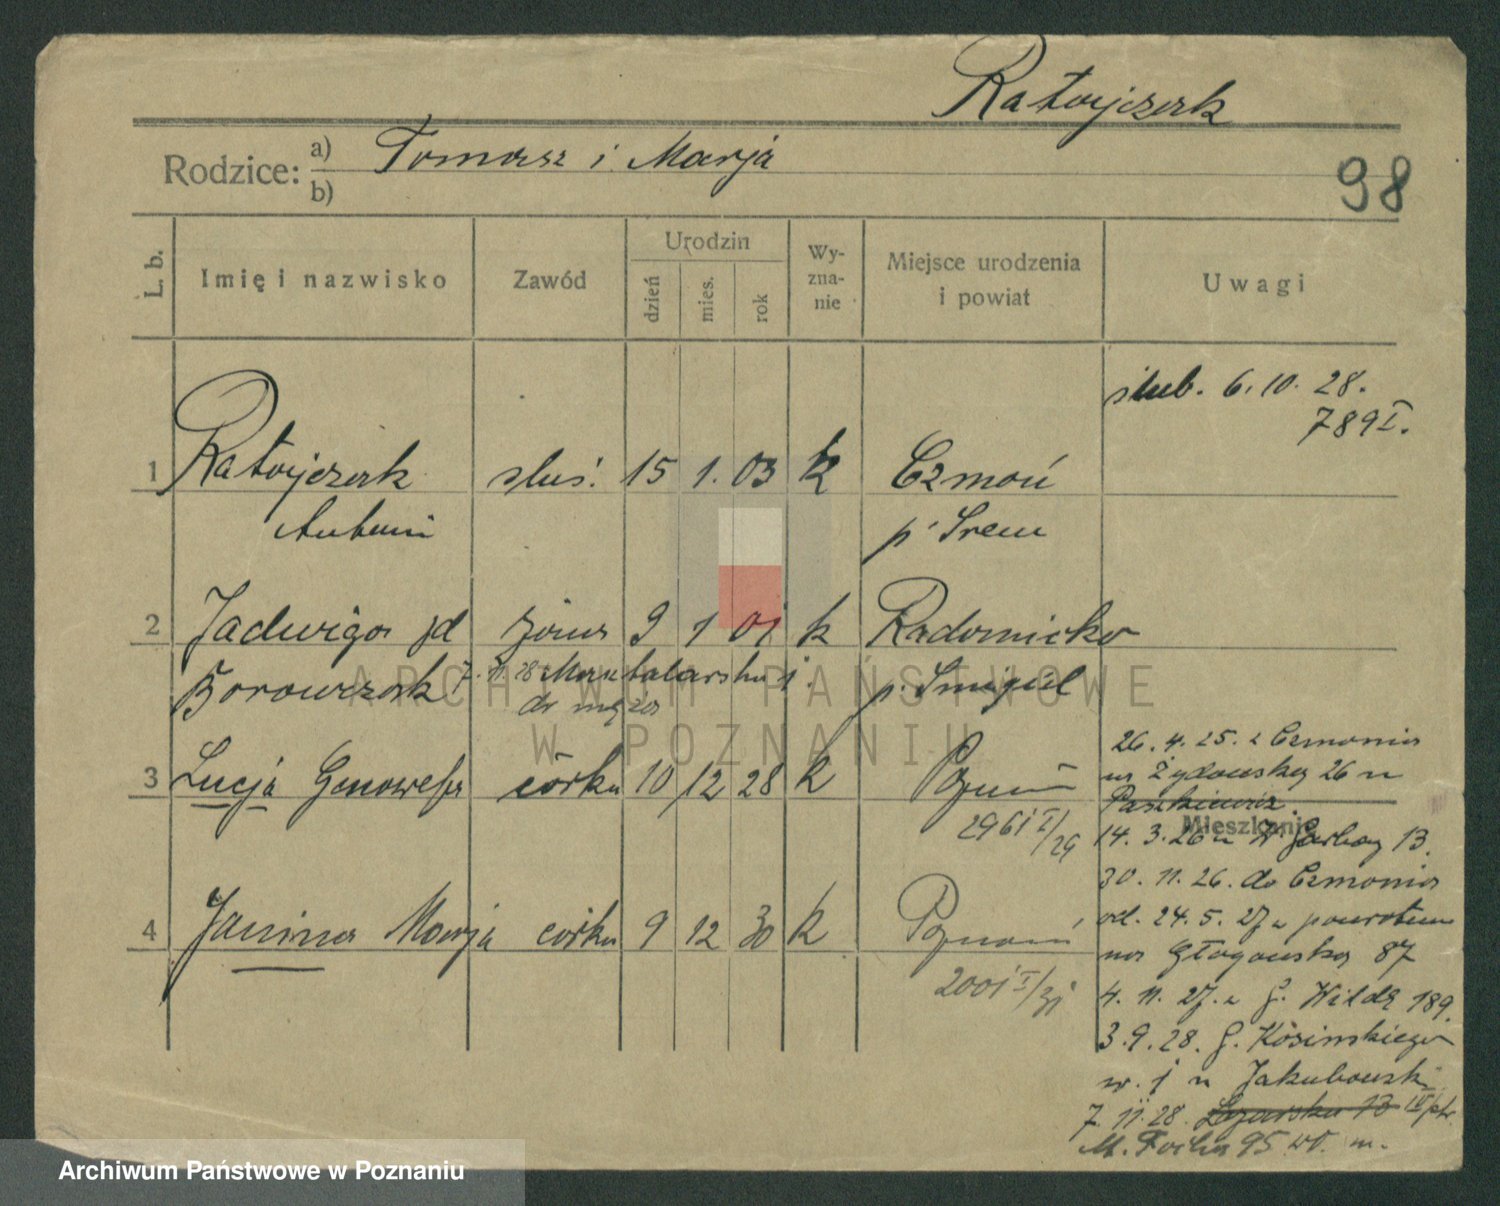 Ratajczak
Rodzice: a) Tomasz i Marja
b)
98
L. b.
Imię i nazwisko
Zawód
Urodzin
dzień
mies.
rok
Wy-
zna-
nie
Miejsce urodzenia
i powiat
Uwagi
ślub. 6. 10. 28.
789 I.
1 Ratajczak śluś. 15 1. 03 k Czmoń
Antoni p. Śrem
2 Jadwiga żona 9 1 01 k Radomicko
Borowczak 7. 11. 28 Masztalarska
do męża p. Śmigiel
ARCHIWUM PAŃSTWOWE
W POZNANIU
3 Łucja Genowefa córka 10 12 28 k Poznań
2961 I/29
4 Janina Marja córka 9 12 30 k Poznań
2001 I/31
26. 4. 25. z Czmonia
na Żydowską 26 u
Paszkiewicz.
Mieszkanie
14. 3. 26 W. Garbary 13.
30. 11. 26. do Czmonia
od. 24. 5. 27 z powrotem
na Głogowską 87
4. 11. 27. G. Wilda 189.
3. 9. 28. G. Kosińskiego
u Jakubowski
7. 11. 28.
M. Focha 95 m.
Archiwum Państwowe w Poznaniu